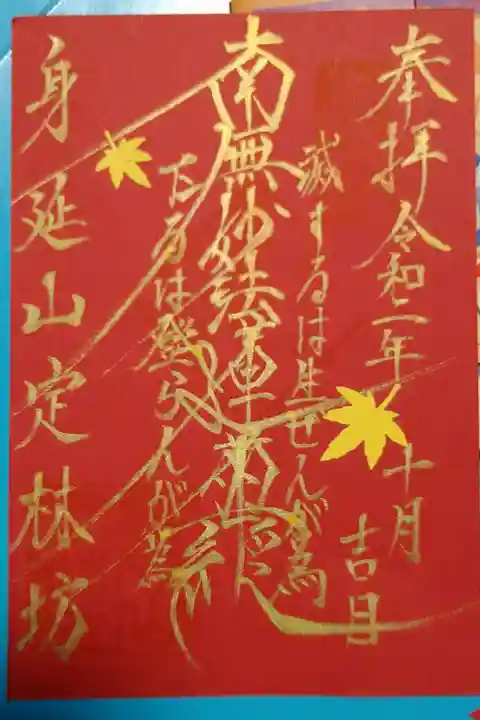 奉拝 令和二年 十月
吉日
滅するは生ぜんが為
南無妙法蓮華経
下るは登らんが為
身延山定林坊